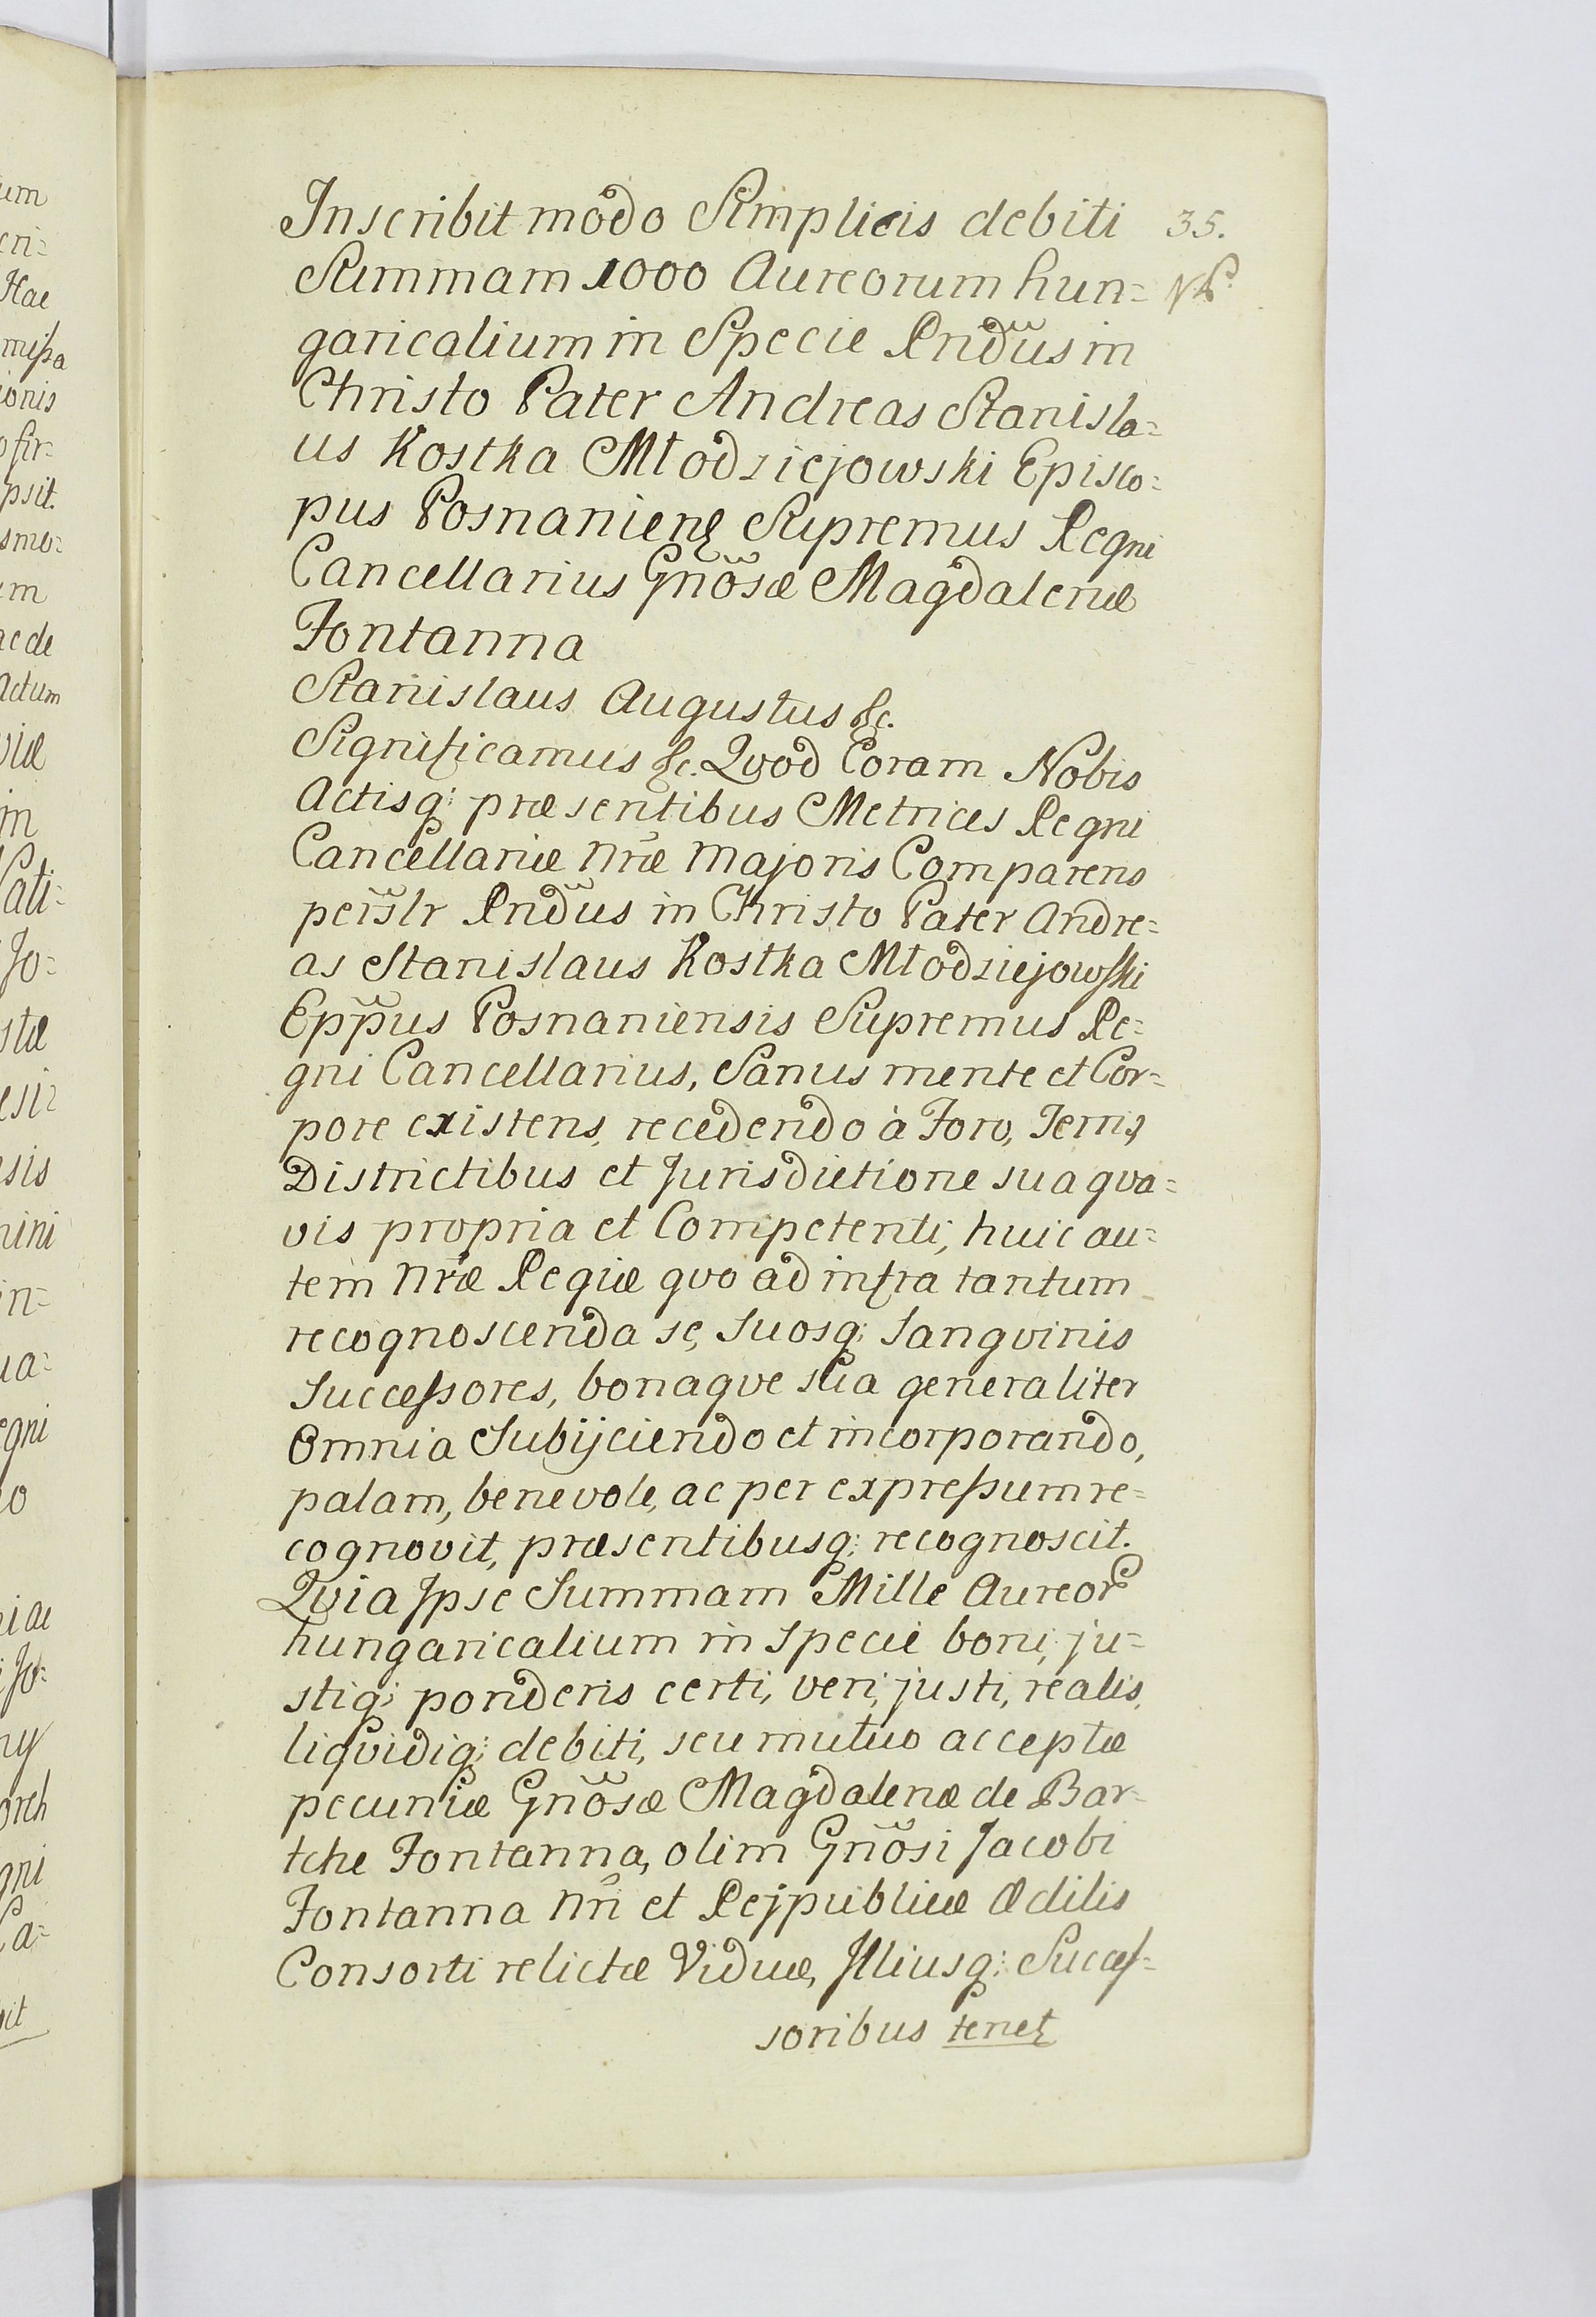 Inscribit modo Simplicis debiti 35.
Summam 1000 Aureorum hun=
garicalium in Specie Rndus in
Christo Pater Andreas Stanisla=
us Kostka Młodziejowski Episco=
pus Posnanien Supremus Regni
Cancellarius Gnosæ Magdalenæ
Fontanna
Stanislaus Augustus &c.
Significamus &c. Qvod Coram Nobis
Actisq; præsentibus Metrices Regni
Cancellariæ Nræ Majoris Comparens
perslr Rndus in Christo Pater Andre=
as Stanislaus Kostka Młodziejowski
Eppus Posnaniensis Supremus Re=
gni Cancellarius, Sanus mente et Cor=
pore existens, recedendo à Foro, Terris
Districtibus et Jurisdictione sua qva=
vis propria et Competenti, huic au=
tem Nræ Regiæ qvo ad infra tantum
recognoscenda se, Suosq; Sangvinis
Successores, bonaqve sua generaliter
Omnia Subijciendo et incorporando,
palam, benevole, ac per expressum re=
cognovit, præsentibusq; recognoscit.
Qvia Ipse Summam Mille Aureor
hungaricalium in Specie boni, ju=
stiq; ponderis certi, veri, justi, realis,
liqvidiq; debiti, seu mutuo acceptæ
pecuniæ Gnosæ Magdalenæ de Bar=
tche Fontanna, olim Gnosi Jacobi
Fontanna Nri et Rejpublicæ Ædilis
Consorti relictæ Viduæ, Illiusq; Succes=
soribus tenet